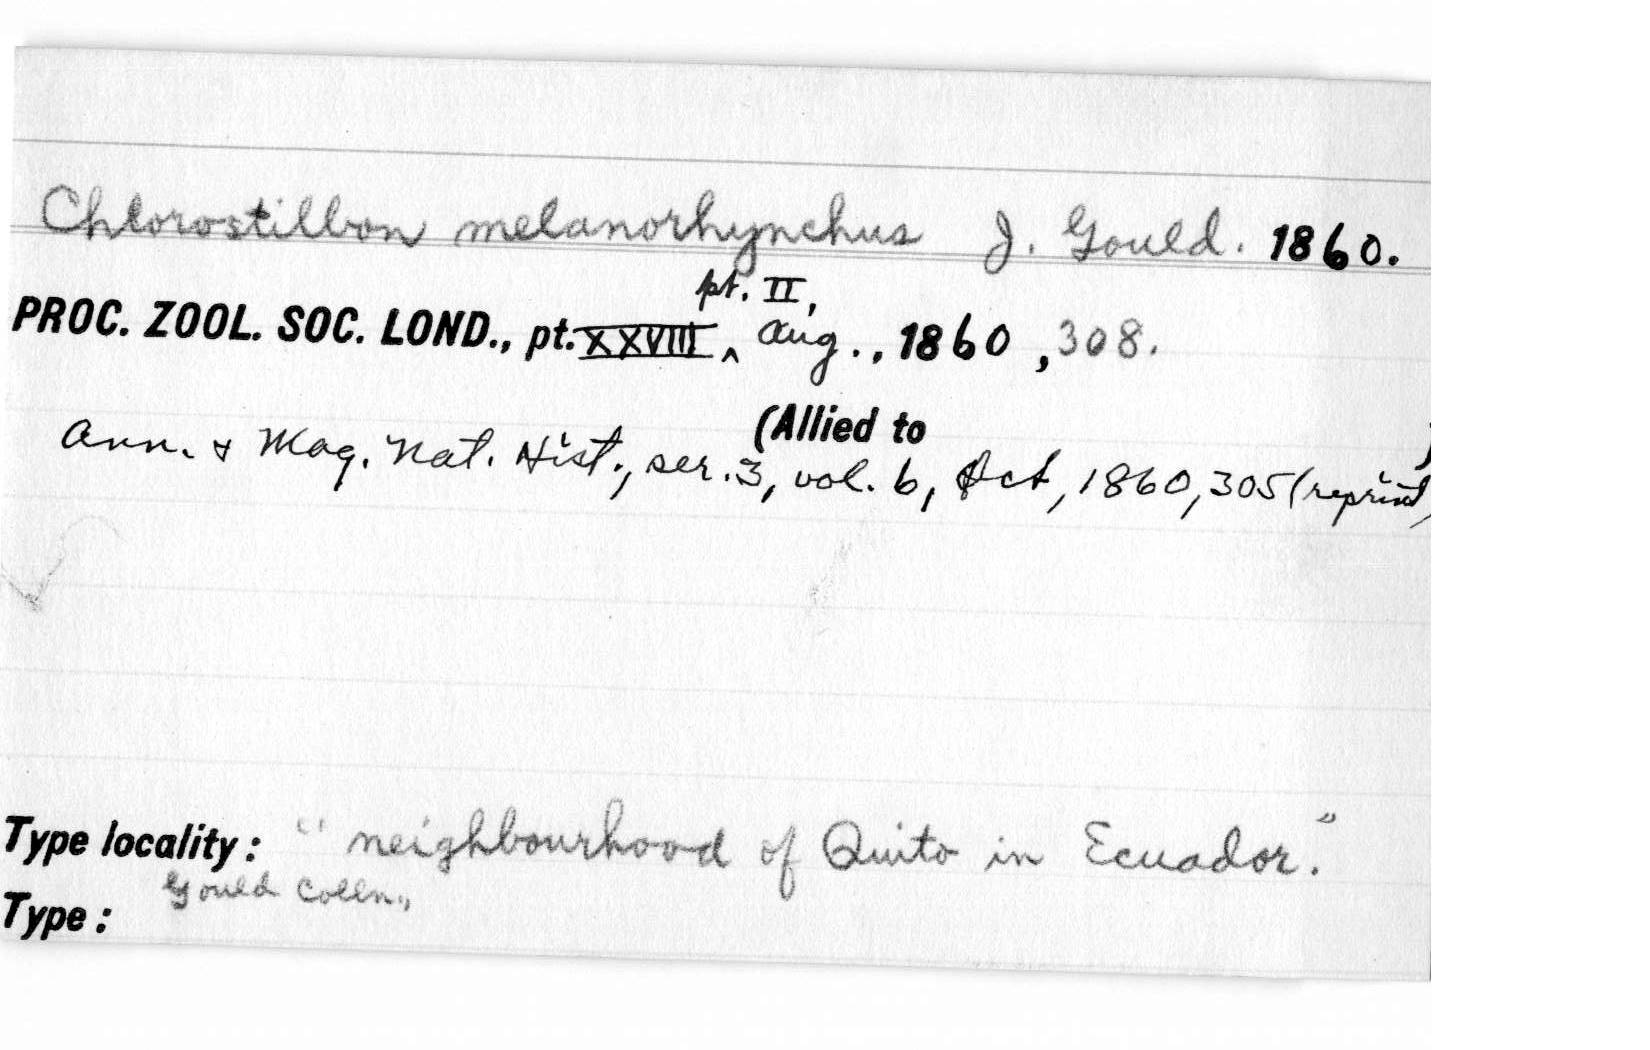 Chlorostilbon melanorhynchus J. Gould. 1860.
pt. II,
PROC. ZOOL. SOC. LOND., pt. XXVIII ‸ Aug., 1860, 308.
(Allied to )
Ann. & Mag. Nat. Hist., ser. 3, vol. 6, Oct, 1860, 305 (reprint)
Type locality: "neighbourhood of Quito in Ecuador."
Gould Colln.,
Type: